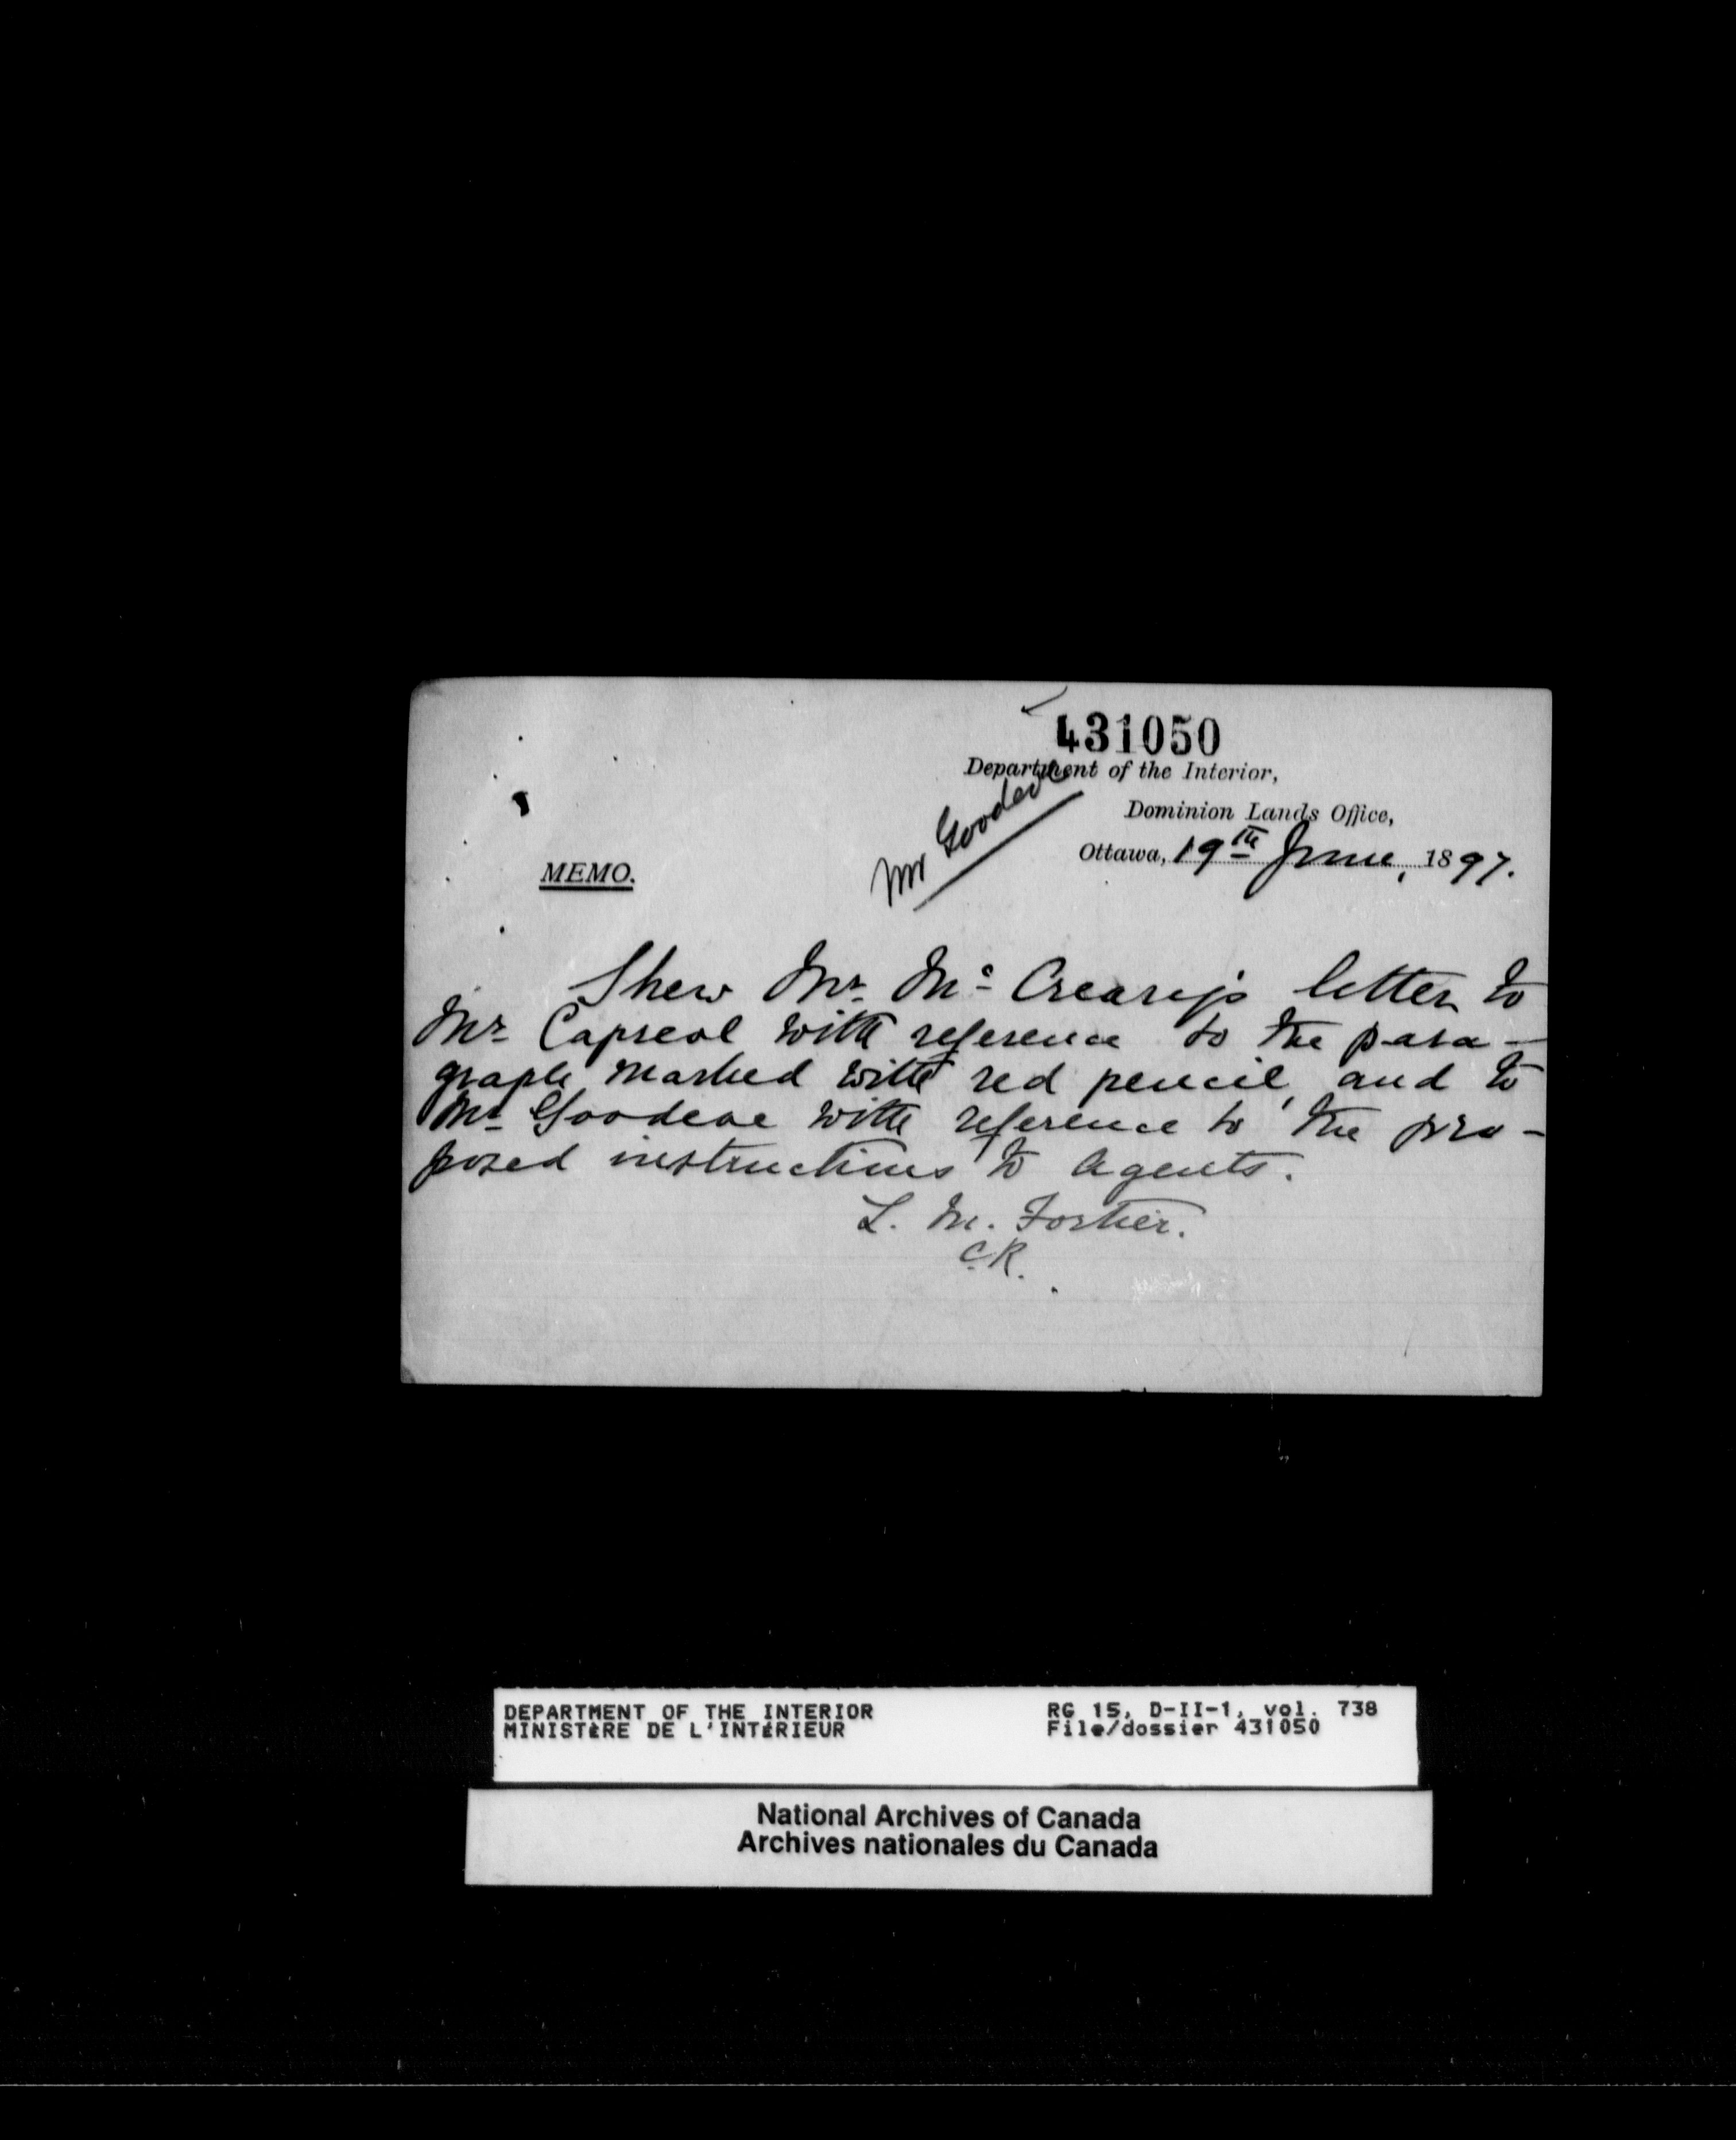 431050
Department of the Interior,
Dominion Lands Office,
Ottawa, 19th June, 1897.
Mr Goodeve
MEMO.
Shew Mr. Mc Creary's letter to
Mr. Capreol with reference to the para-
graph marked with red pencil, and to
Mr. Goodeve with reference to the pro-
posed instructions to agents.
L. M. Fortier.
C.R.
DEPARTMENT OF THE INTERIOR
MINISTÈRE DE L'INTÉRIEUR
RG 15, D-II-1, vol. 738
File/dossier 431050
National Archives of Canada
Archives nationales du Canada